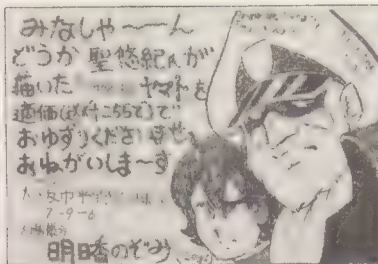 みなしゃ〜〜ん
どうか 聖悠紀氏が
描いた ヤマトを
適価(送料こちらで)で
おゆずりくださいませ
おねがいしま〜す
7-9-6
明日香のぞみ